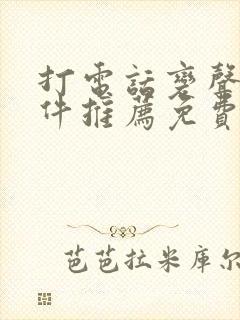 打電話變聲
件推薦免費
芭芭拉米库尔